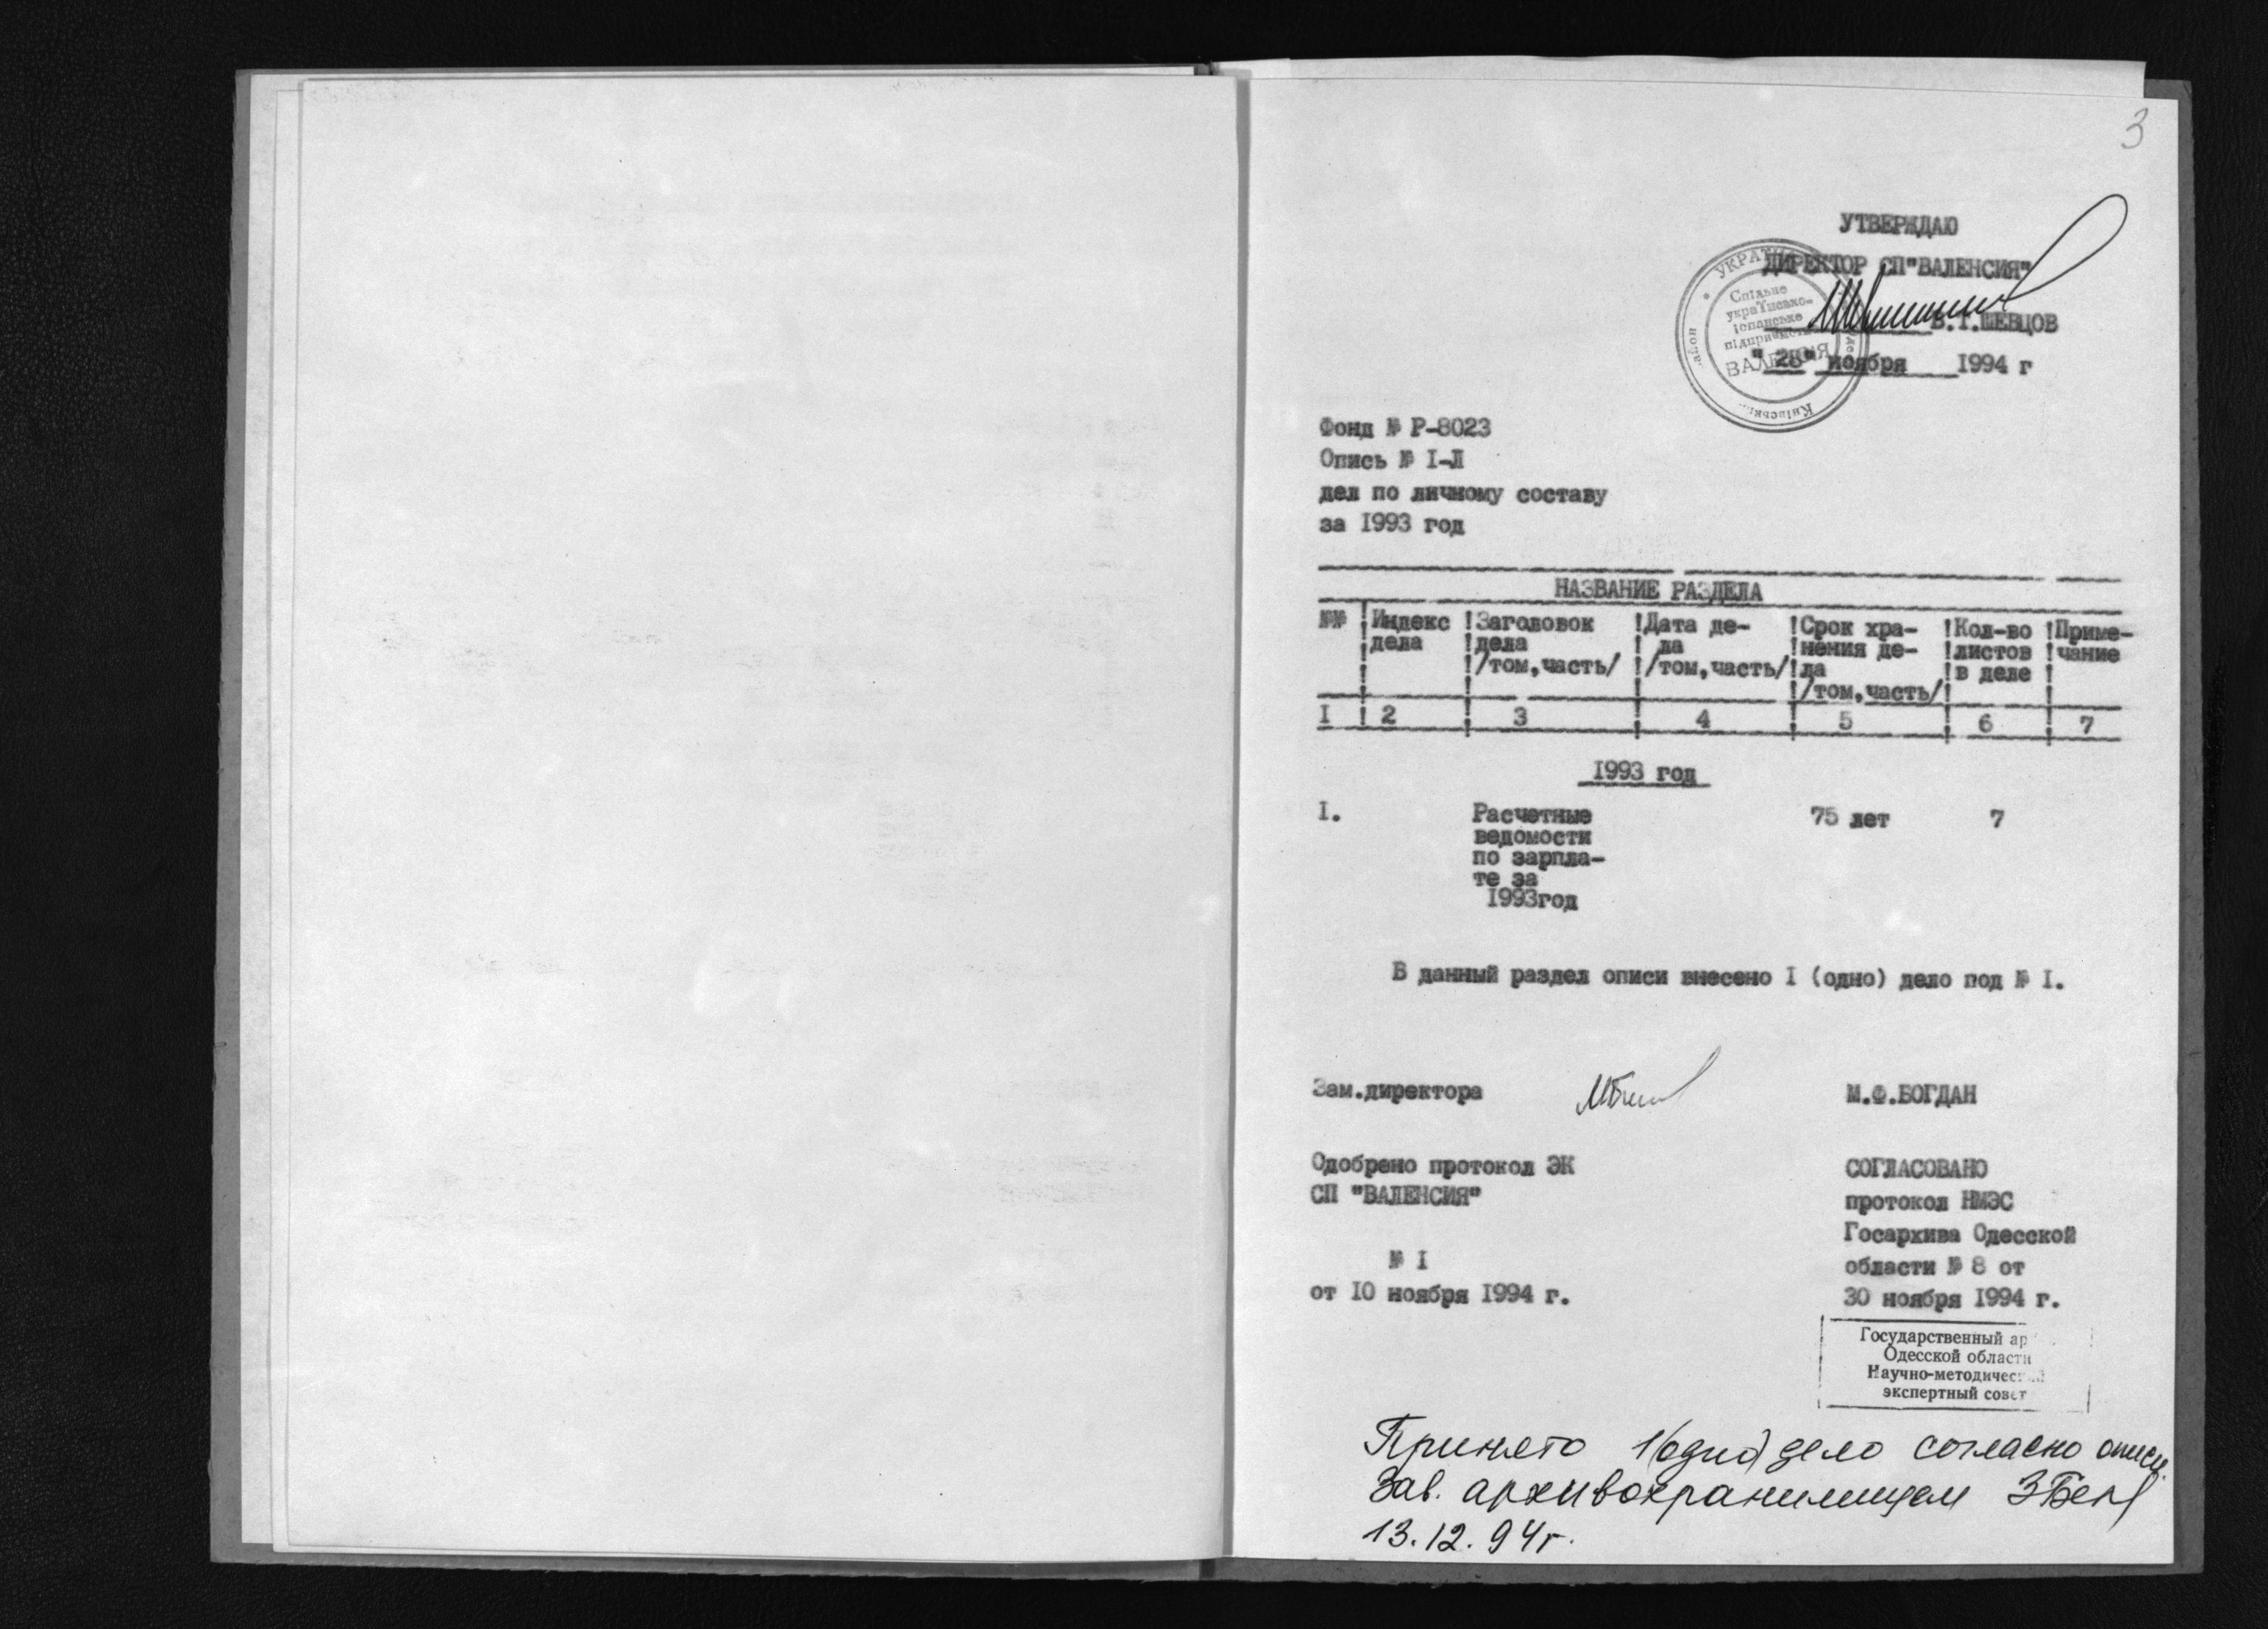 3
УТВЕРЖДАЮ
ДИРЕКТОР СП"ВАЛЕНСИЯ"
В.Т.ШЕВЦОВ
"28" ноября 1994 г
Спільне
українсько-
іспанське
ВАЛЕНСІЯ
Фонд № Р-8023
Опись № I-Л
дел по личному составу
за 1993 год
НАЗВАНИЕ РАЗДЕЛА
№№ !Индекс !Заголовок !Дата де- !Срок хра- !Кол-во !Приме-
!дела !дела ! ла !нения де- !листов !чание
!/том,часть/ !/том,часть/!ла !в деле !
!/том,часть/!
I ! 2 ! 3 ! 4 ! 5 ! 6 ! 7
1993 год
I. Расчетные 75 лет 7
ведомости
по зарпла-
те за
1993год
В данный раздел описи внесено I (одно) дело под № I.
Зам.директора М.Ф.БОГДАН
Одобрено протокол ЭК
СП "ВАЛЕНСИЯ"
№ I
от 10 ноября 1994 г.
СОГЛАСОВАНО
протокол НМЭС
Госархива Одесской
области № 8 от
30 ноября 1994 г.
Государственный ар
Одесской области
Научно-методичес
экспертный совет
Принято 1(одно) дело согласно описи.
Зав. архивохранилищем
13.12.94г.